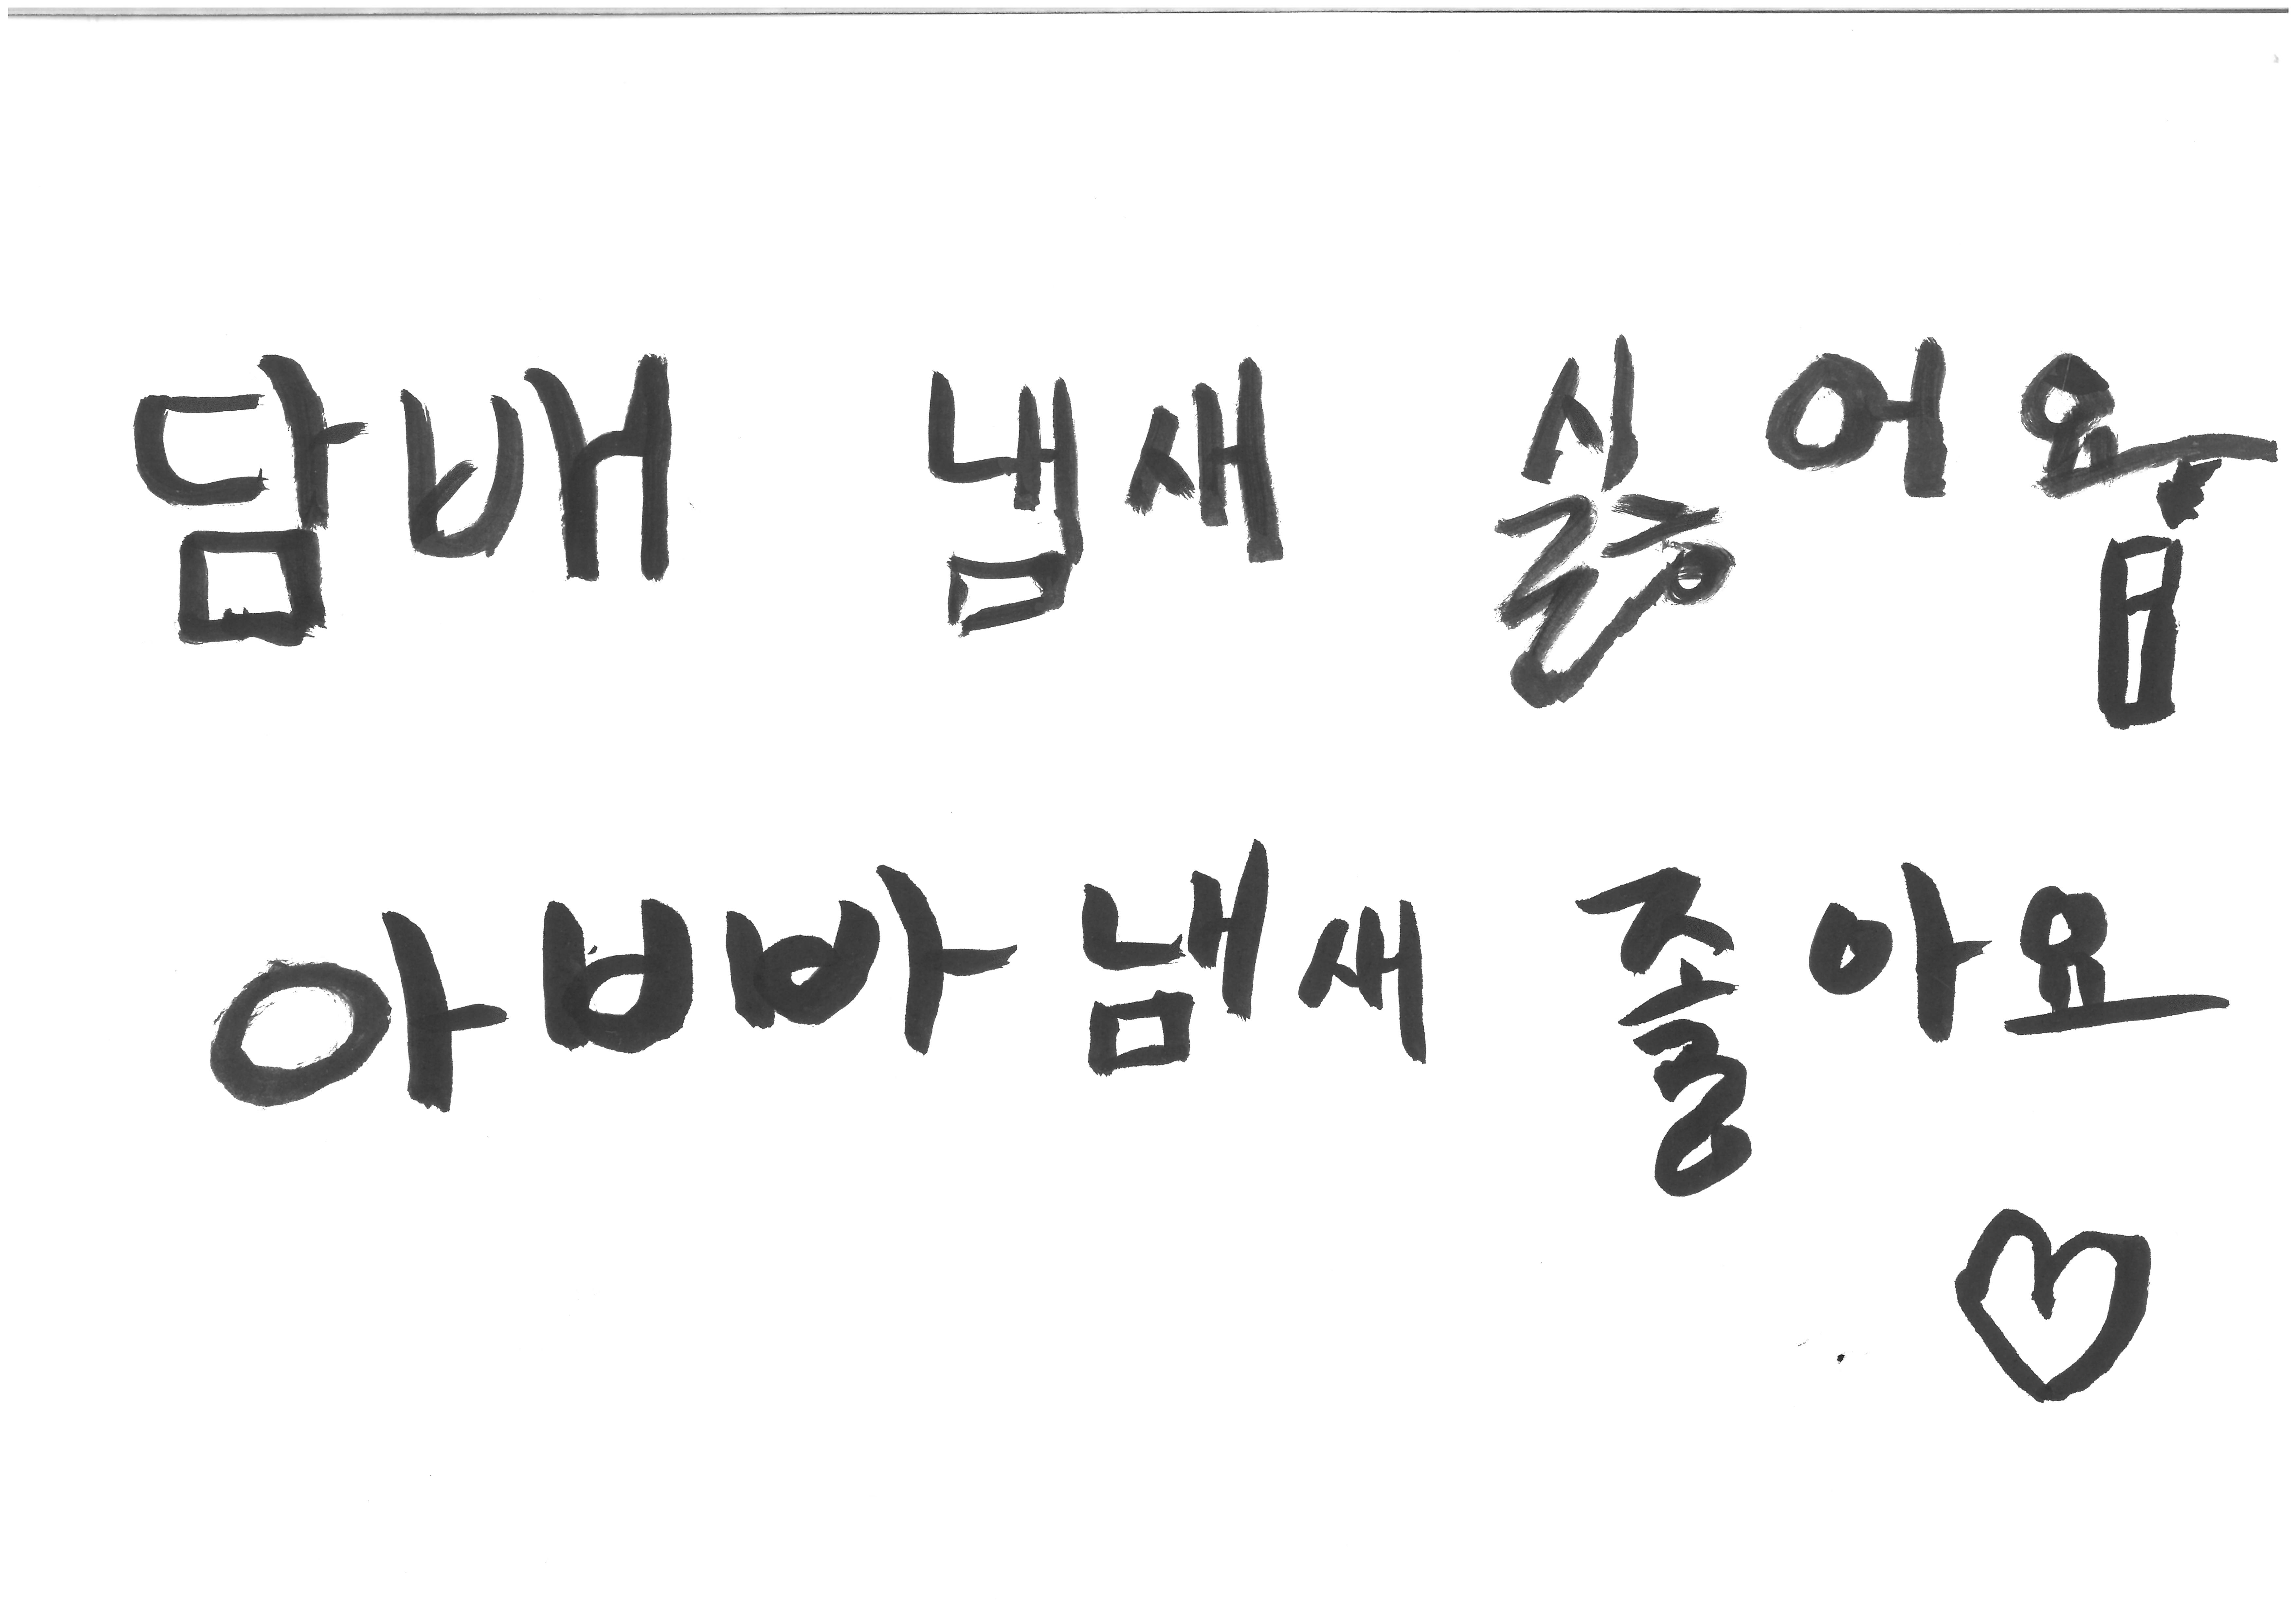 담배 냄새 싫어요
아빠 냄새 좋아요